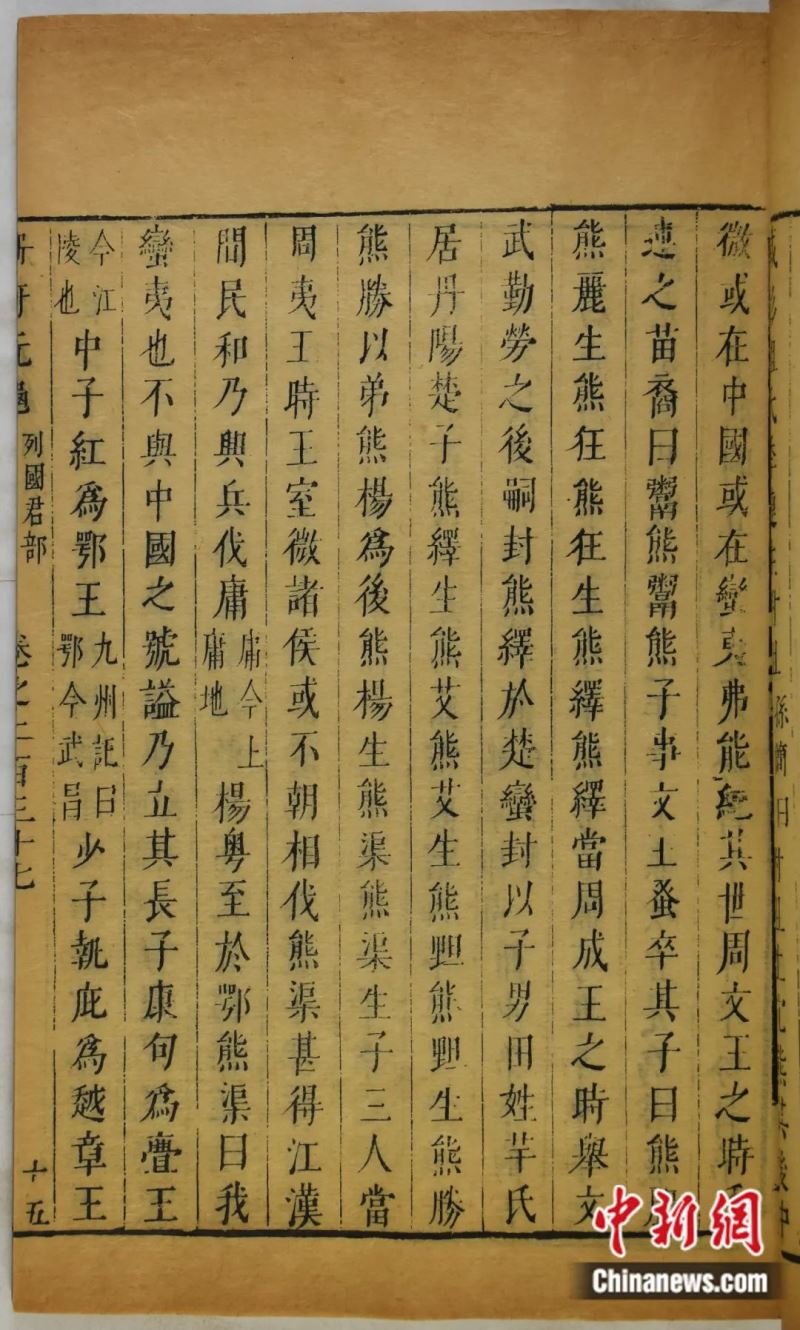 微或在中國或在蠻夷弗能紀其世周文王之時
連之苗裔曰鬻熊鬻熊子事文王蚤卒其子曰熊
熊麗生熊狂熊狂生熊繹熊繹當周成王之時舉文
武勤勞之後嗣封熊繹於楚蠻封以子男田姓芉氏
居丹陽楚子熊繹生熊艾熊艾生熊䵣熊䵣生熊勝
熊勝以弟熊楊爲後熊楊生熊渠熊渠生子三人當
周夷王時王室微諸侯或不朝相伐熊渠甚得江漢
間民和乃興兵伐庸庸今上庸地楊粵至於鄂熊渠曰我
蠻夷也不與中國之號謚乃立其長子康句爲亹王
今江陵也中子紅爲鄂王九州記曰鄂今武昌少子執疵爲越章王
列國君部 卷之二百三十七 十五
中新網
Chinanews.com